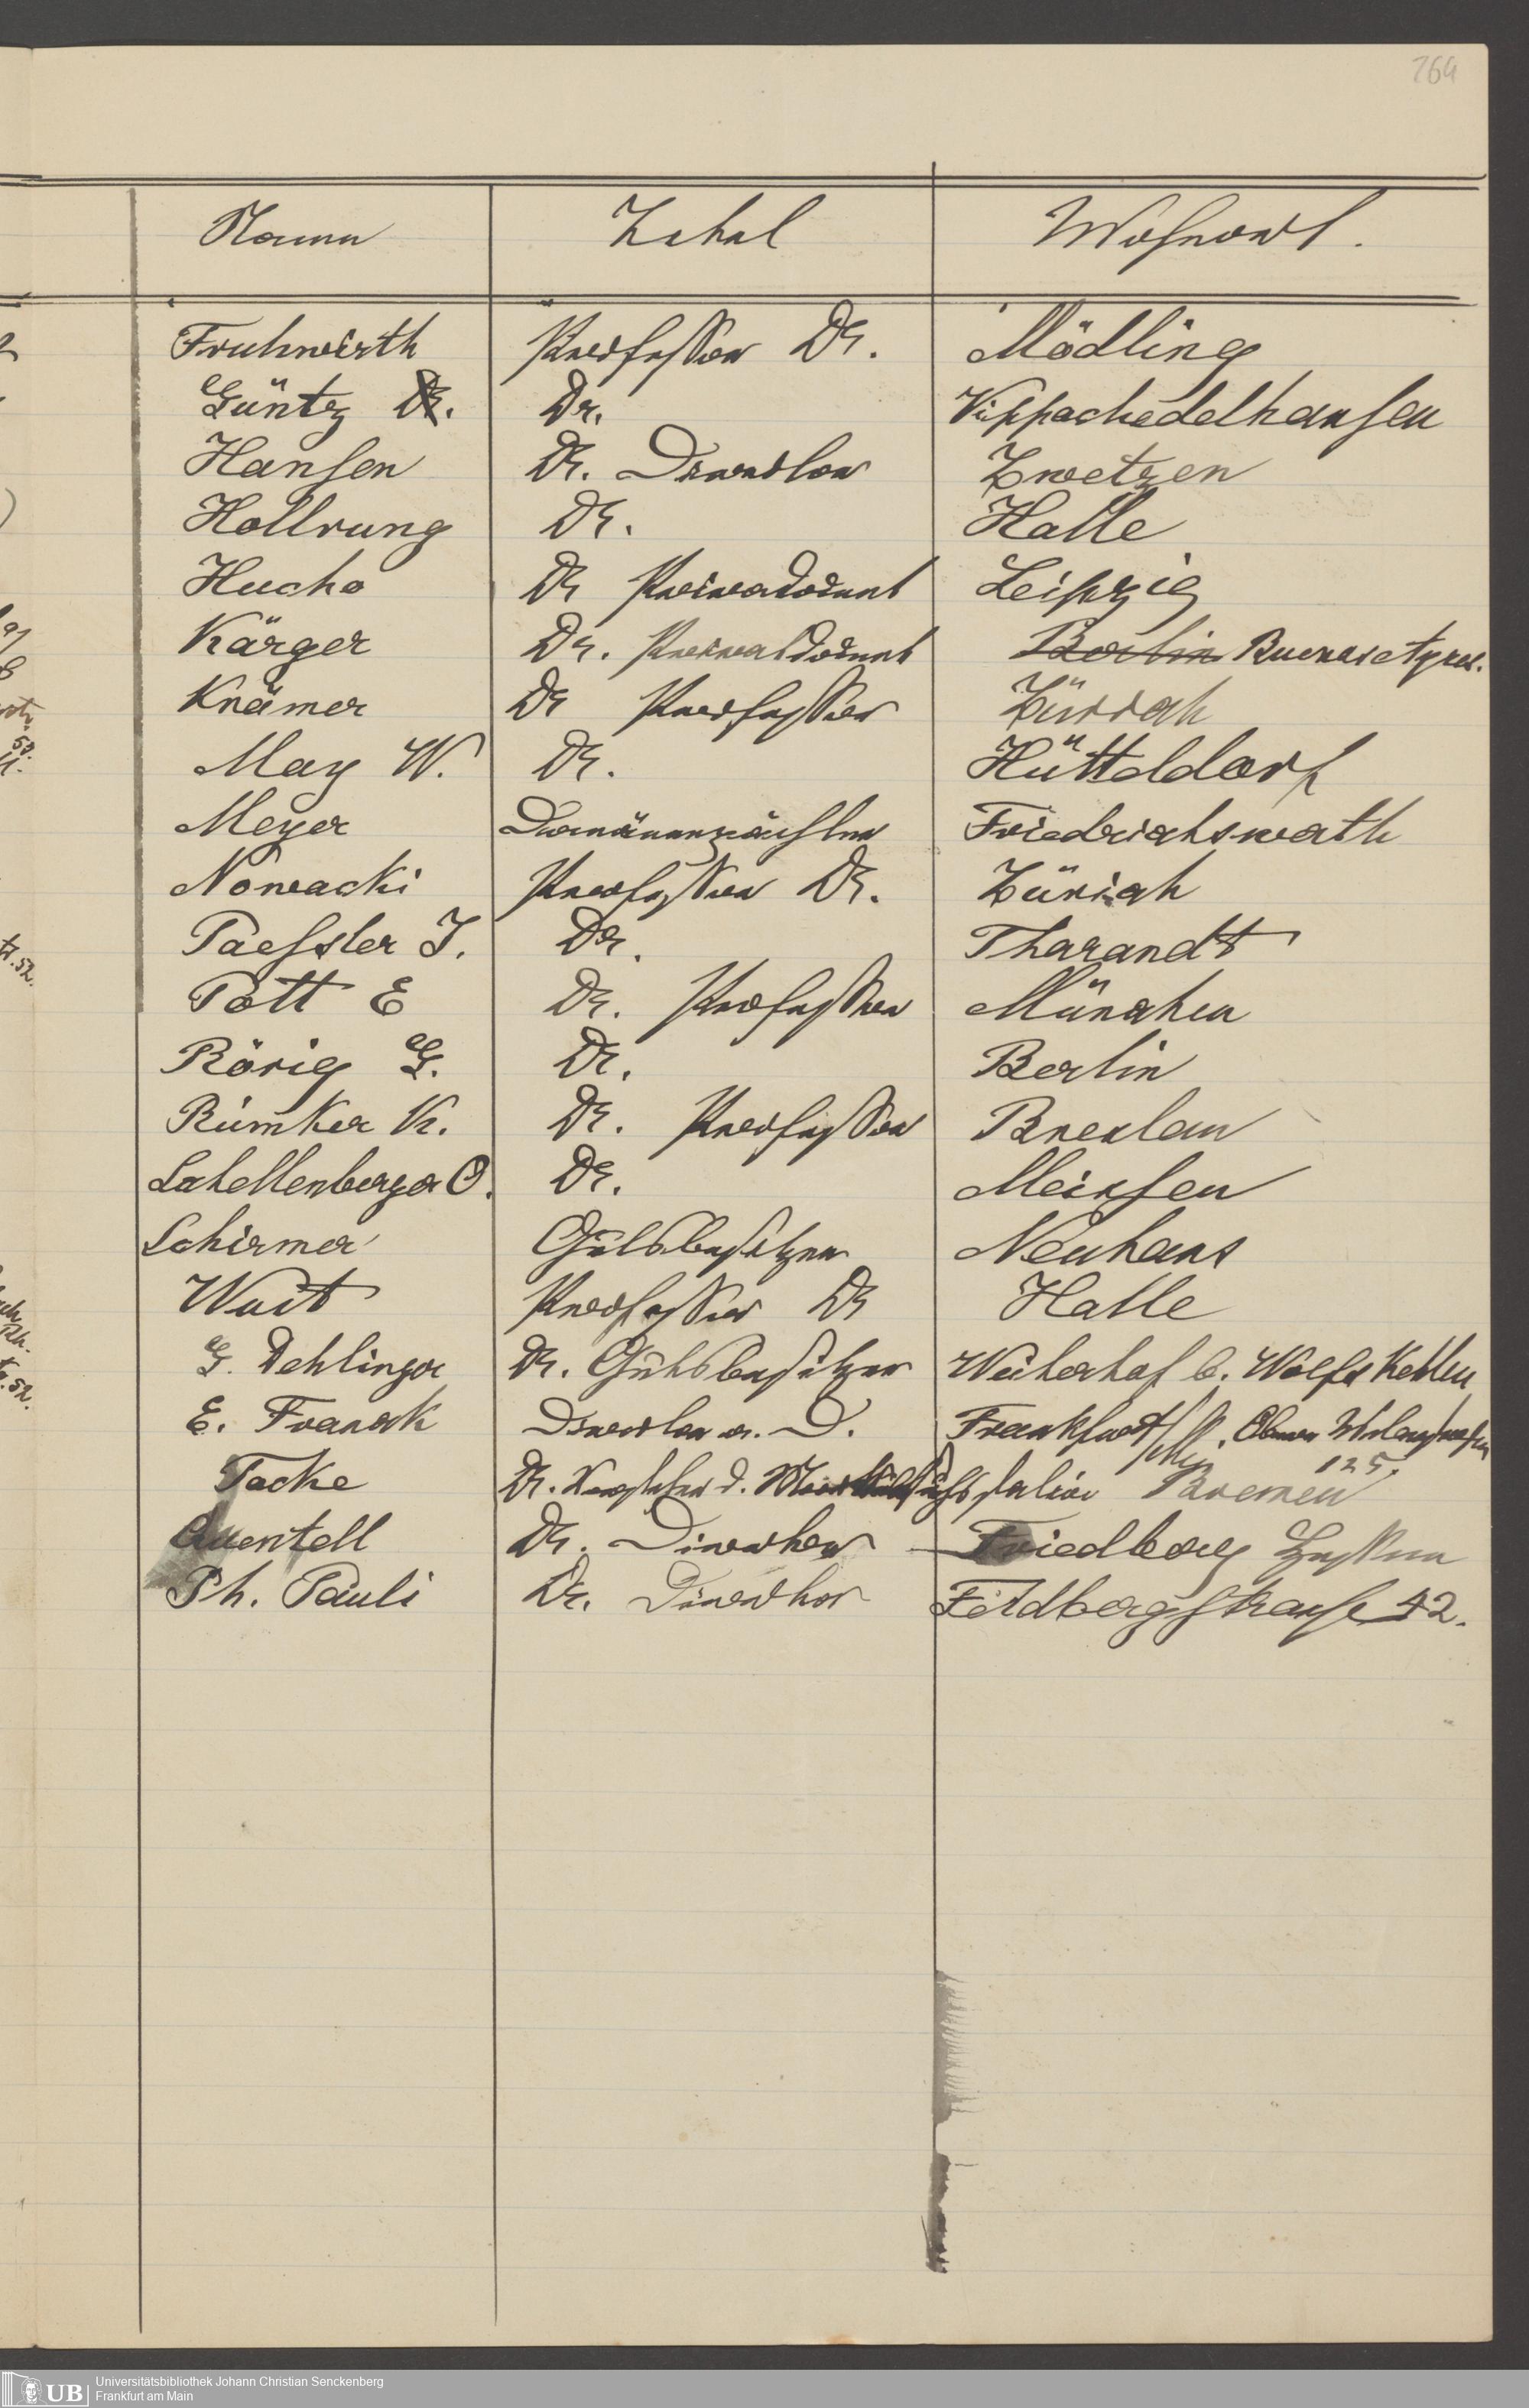 164
Namen Titel Wohnort.
Fruhwirth Professor Dr. Mödling
Güntz Dr. Dr. Vippachedelhausen
Hansen Dr. Direktor Zwetzen
Hollrung Dr. Halle
Hucho Dr Privatdocent Leipzig
Kärger Dr. Privatdocent Berlin Buenos Ayres.
Krämer Dr Professor Zürich
May W. Dr. Hütteldorf
Meyer Domänenpächter Friedrichswerth
Nowacki Professor Dr. Zürich
Paessler J. Dr. Tharandt
Pott E Dr. Professor München
Rörig G. Dr. Berlin
Rümker K. Dr. Professor Breslau
Schellenberger O. Dr. Meissen
Schirmer Gutsbesitzer Neuhaus
Wüst Professor Dr Halle
G. Dehlinger Dr. Gutsbesitzer Weilerhof b. Wolfskehlen
E. Franck Direktor a. D. Frankfurt/M. Oberer
125.
Tacke Dr. Vorsteher d. Moorversuchsstation Bremen
Quentell Dr. Direktor Friedberg Hessen
Ph. Pauli Dr. Direktor Feldbergstrasse 42.
UB Universitätsbibliothek Johann Christian Senckenberg
Frankfurt am Main